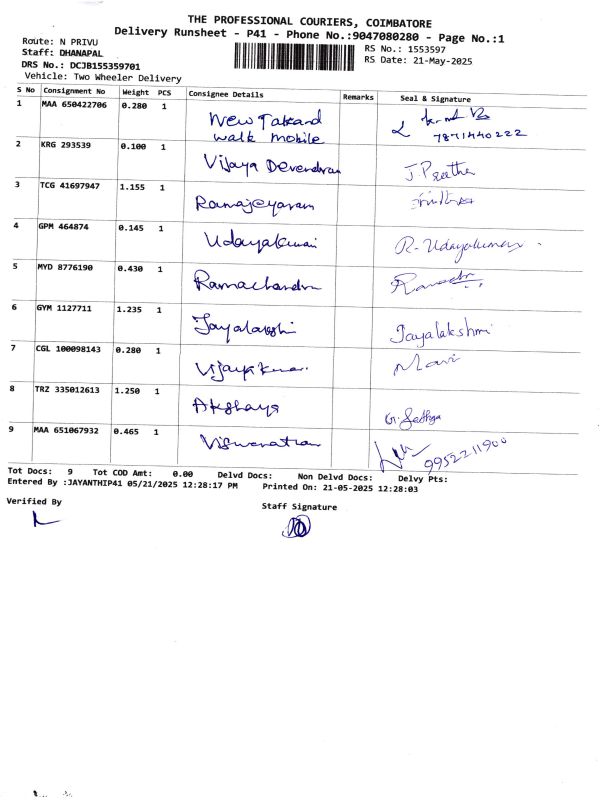 THE PROFESSIONAL COURIERS, COIMBATORE
Delivery Runsheet - P41 - Phone No.:9047080280 - Page No.:1
Route: N PRIVU
RS No.: 1553597
Staff: DHANAPAL
RS Date: 21-May-2025
DRS No.: DCJB155359701
Vehicle: Two Wheeler Delivery
S No Consignment No Weight PCS Consignee Details Remarks Seal & Signature
1 MAA 650422706 0.280 1 New
walk mobile 7871440222
2 KRG 293539 0.100 1 Vijaya Devendran J. Preetha
3 TCG 41697947 1.155 1 Ramajeyaram
4 GPM 464874 0.145 1 Udayakumar R. Udayakumar
5 MYD 8776190 0.430 1 Ramachandra
6 GYM 1127711 1.235 1 Jayalakshmi Jayalakshmi
7 CGL 100098143 0.280 1 Vijayakumar Mani
8 TRZ 335012613 1.250 1 Akshaya G. Sathya
9 MAA 651067932 0.465 1 Viswanathan 9952211900
Tot Docs: 9 Tot COD Amt: 0.00 Delvd Docs: Non Delvd Docs: Delvy Pts:
Entered By :JAYANTHIP41 05/21/2025 12:28:17 PM Printed On: 21-05-2025 12:28:03
Verified By
Staff Signature